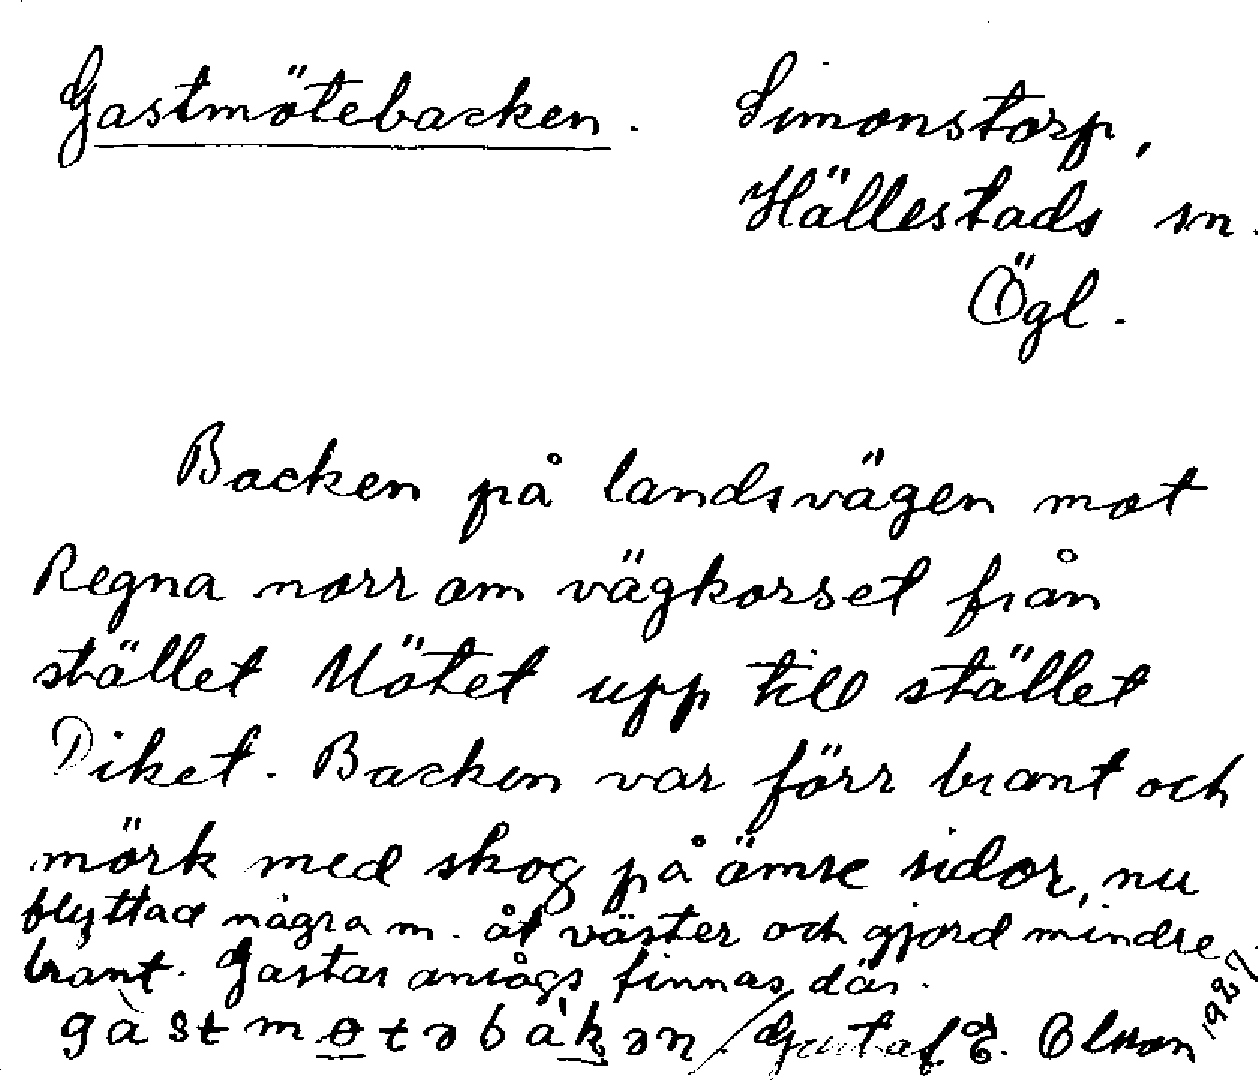 Gastmötebacken. Simonstorp,
Hällestads sn.
Ögl.
Backen på landsvägen mot
Regna norr om vägkorset från
stället Mötet upp till stället
Diket. Backen var förr brant och
mörk med skog på ömse sidor, nu
flyttad några m. åt väster och gjord mindre
brant. Gastar ansågs finnas där.
gàstmøtəbàkən / Gustaf E. Olsson 1927.